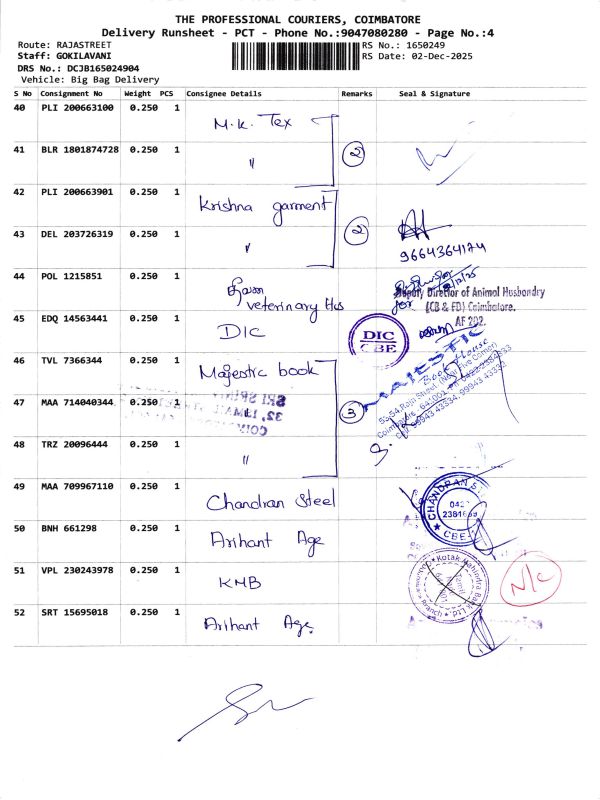 THE PROFESSIONAL COURIERS, COIMBATORE
Delivery Runsheet - PCT - Phone No.:9047080280 - Page No.:4
Route: RAJASTREET
RS No.: 1650249
Staff: GOKILAVANI
RS Date: 02-Dec-2025
DRS No.: DCJB165024904
Vehicle: Big Bag Delivery
S No Consignment No Weight PCS Consignee Details Remarks Seal & Signature
40 PLI 200663100 0.250 1 M.K. Tex
41 BLR 1801874728 0.250 1 " 2
42 PLI 200663901 0.250 1 Krishna garment
43 DEL 203726319 0.250 1 " 2
9664364174
44 POL 1215851 0.250 1 veterinary Hos
Deputy Director of Animal Husbandry
(CB & FD) Coimbatore.
45 EDQ 14563441 0.250 1 DIC
DIC
CBE
AF 202.
46 TVL 7366344 0.250 1 Majestic book
MAJESTIC
Book House
47 MAA 714040344 0.250 1 3
48 TRZ 20096444 0.250 1 "
49 MAA 709967110 0.250 1 Chandran Steel
CHANDRAN
CBE
50 BNH 661298 0.250 1 Arihant Age
51 VPL 230243978 0.250 1 KMB
Kotak Mahindra Bank Ltd.
Branch
N/C
52 SRT 15695018 0.250 1 Arihant Age